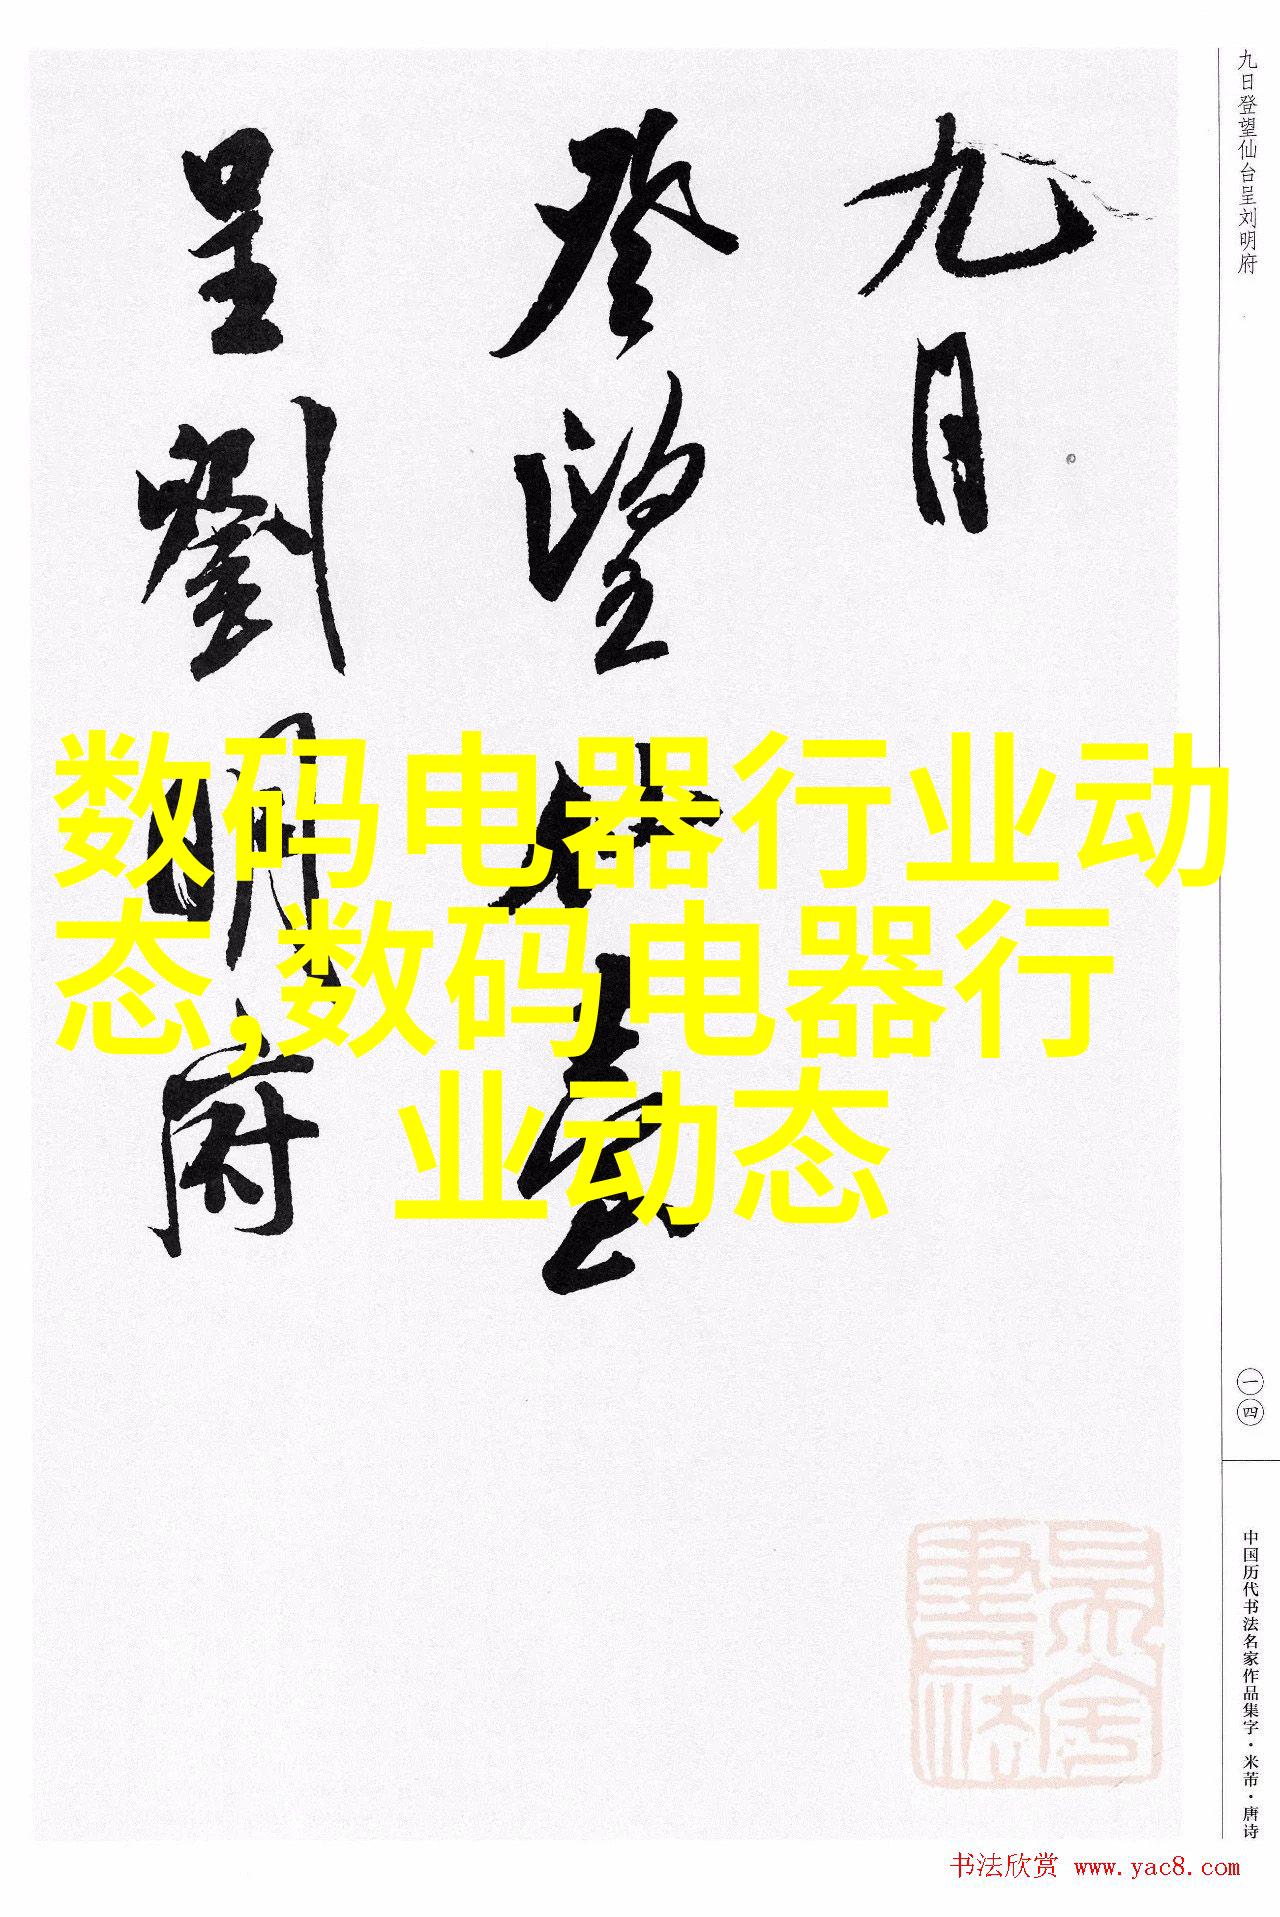 九日
登望仙臺
呈劉明府
九日登望仙台呈刘明府
一四
中国历代书法名家作品集字·米芾·唐诗
数码电器行业动
态,数码电器行
业动态
书法欣赏 www.yac8.com